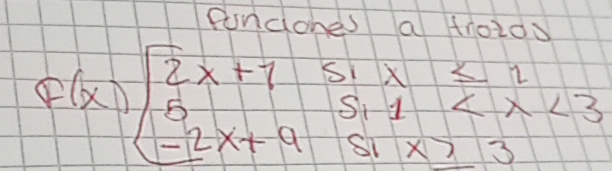 funciones a trozos
F(x) 2x+7 si x ≤ 1
5 si 1 < x < 3
-2x+9 si x ≥ 3